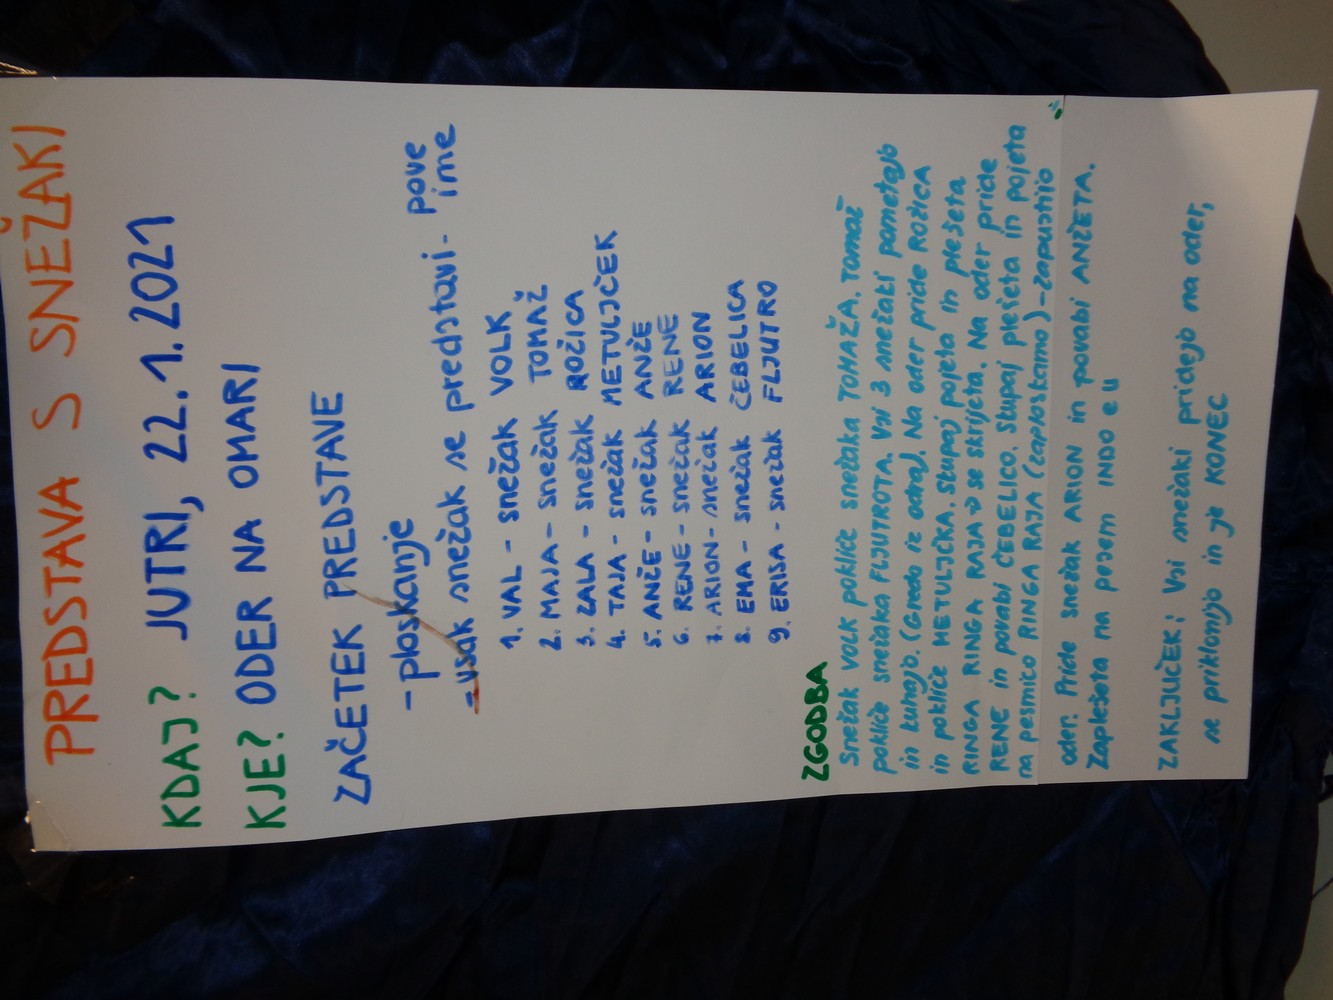 PREDSTAVA S SNEŽAKI
KDAJ? JUTRI, 22.1.2021
KJE? ODER NA OMARI
ZAČETEK PREDSTAVE
-ploskanje
-vsak snežak se predstavi - pove
ime
1. VAL - snežak VOLK
2. MAJA - snežak TOMAŽ
3. ZALA - snežak ROŽICA
4. TAJA - snežak METULJČEK
5. ANŽE - snežak ANŽE
6. RENE - snežak RENE
7. ARION - snežak ARION
8. EMA - snežak ČEBELICA
9. ERISA - snežak FLJUTRO
ZGODBA
Snežak VOLK pokliče snežaka TOMAŽA. TOMAŽ
pokliče snežaka FLJUTROTA. Vsi 3 snežaki pometajo
in kuhajo. (Gredo iz odra). Na oder pride ROŽICA
in pokliče METULJČKA. Skupaj pojeta in plešeta
RINGA RINGA RAJA → se skrijeta. Na oder pride
RENE in povabi ČEBELICO. Skupaj plešeta in pojeta
na pesmico RINGA RAJA (zaploskamo) - zapustijo
oder. Pride snežak ARION in povabi ANŽETA.
Zaplešeta na pesem INDO e U
ZAKLJUČEK: Vsi snežaki pridejo na oder,
se priklonijo in je KONEC